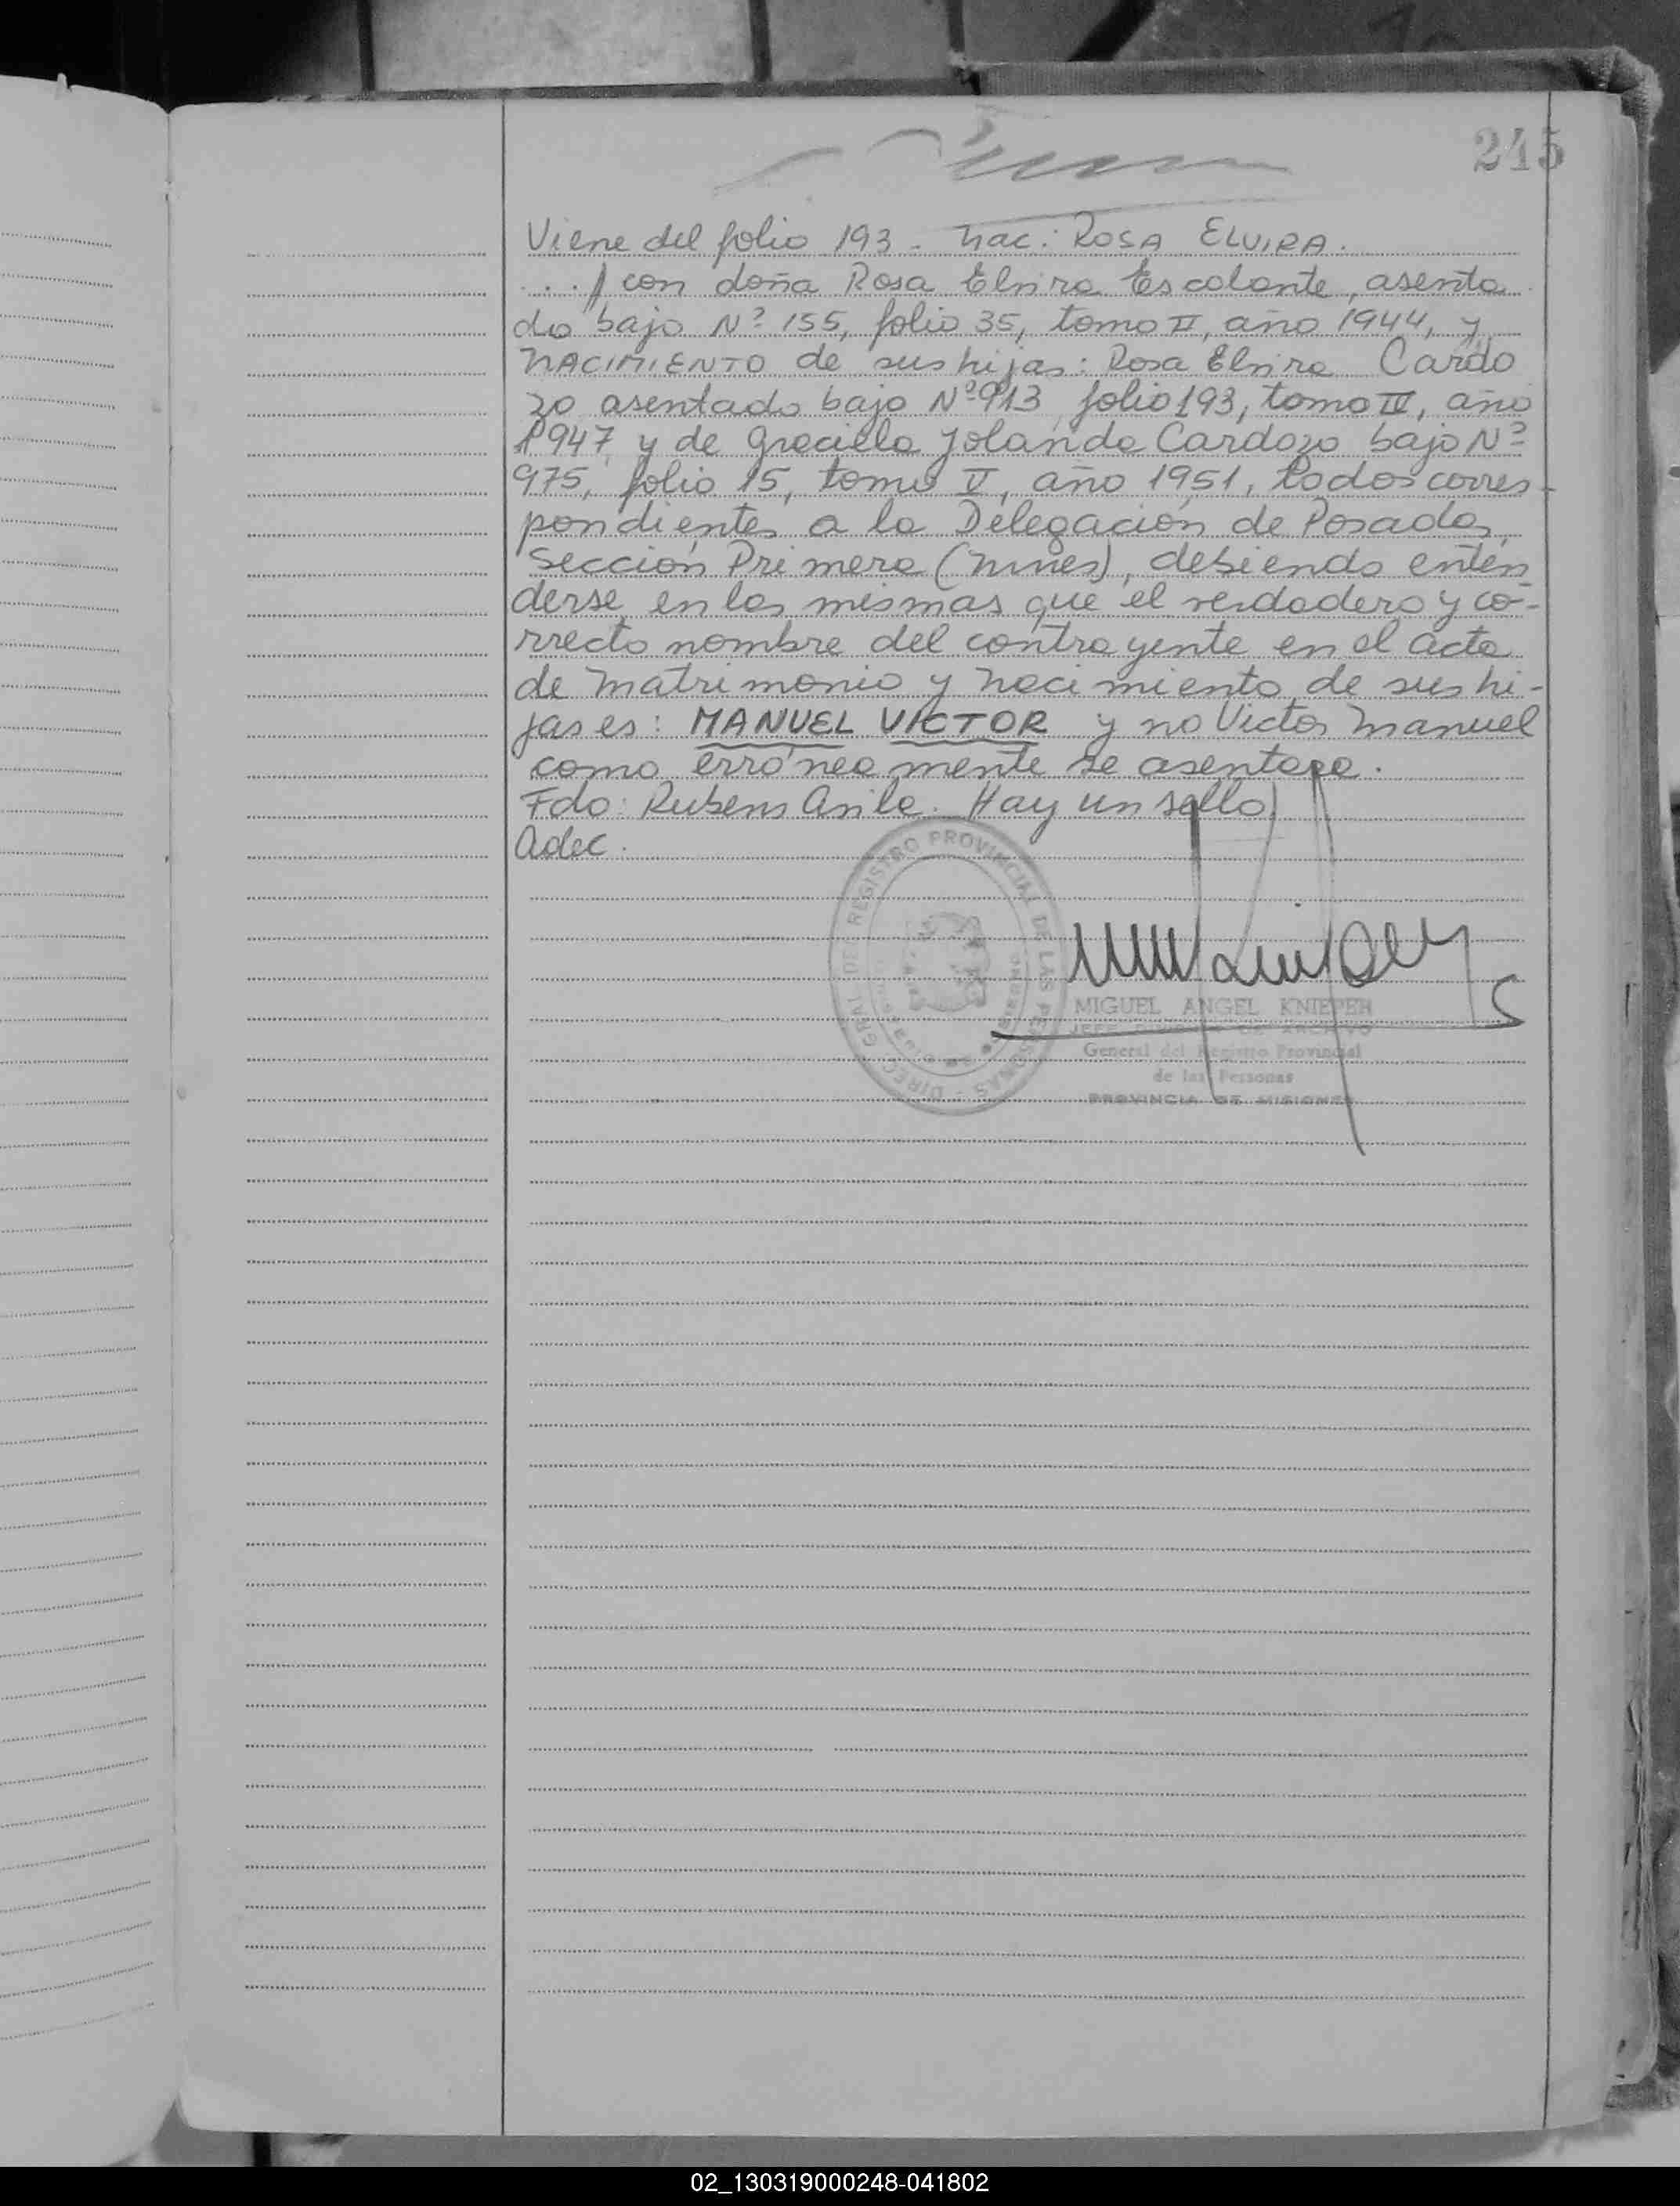 245
Viene del folio 193. Nac: ROSA ELVIRA.
.../ con doña Rosa Elvira Escalante, asenta
do bajo Nº 155, folio 35, tomo II, año 1944, y
NACIMIENTO de sus hijas: Rosa Elvira Cardo
zo asentado bajo Nº 913 folio 193, tomo III, año
1947 y de Graciela Yolanda Cardozo bajo Nº
975, folio 15, tomo V, año 1951, todos corres-
pondientes a la Delegación de Posadas,
Sección Primera (Nuñes), debiendo enten
derse en las mismas que el verdadero y co-
rrecto nombre del contrayente en el acta
de Matrimonio y Nacimiento de sus hi-
jas es: MANUEL VICTOR y no Victor Manuel
como erróneamente se asentara.
Fdo: Rubens Avila. Hay un sello.
Adec.
DIREC. GRAL. DEL REGISTRO PROVINCIAL DE LAS PERSONAS
MIGUEL ANGEL KNIEPER
JEFE ARCHIVO
General del Registro Provincial
de las Personas
PROVINCIA DE MISIONES
02_130319000248-041802